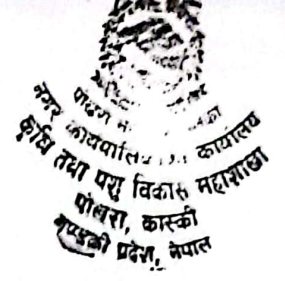 पोखरा
नगर कार्यपालिकाको कार्यालय
कृषि तथा पशु विकास महाशाखा
पोखरा, कास्की
गण्डकी प्रदेश, नेपाल